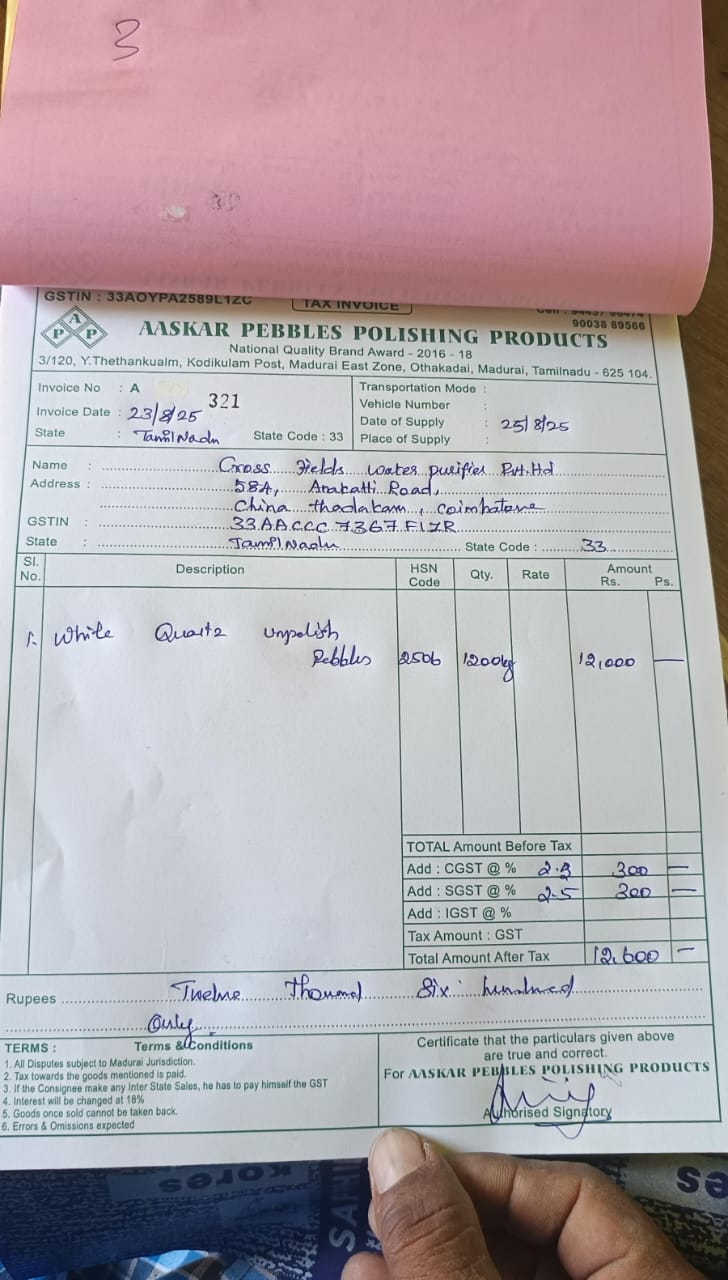 3
GSTIN : 33AOYPA2589L1ZC
TAX INVOICE
90038 89566
A P P
AASKAR PEBBLES POLISHING PRODUCTS
National Quality Brand Award - 2016 - 18
3/120, Y.Thethankualm, Kodikulam Post, Madurai East Zone, Othakadai, Madurai, Tamilnadu - 625 104.
Invoice No : A 321
Invoice Date : 23/8/25
State : Tamil Nadu State Code : 33
Transportation Mode :
Vehicle Number :
Date of Supply : 25/8/25
Place of Supply :
Name : Cross Fields water purifier Pvt.Ltd
Address : 58A, Anakatti Road,
China thadakam, Coimbatore
GSTIN : 33AACCC7367F1ZR
State : Tamil Nadu State Code : 33
Sl. No. Description HSN Code Qty. Rate Amount Rs. Ps.
1. White Quartz unpolish
Pebbles 2506 1200kg 12,000 —
TOTAL Amount Before Tax
Add : CGST @ % 2.5 300 —
Add : SGST @ % 2.5 300 —
Add : IGST @ %
Tax Amount : GST
Total Amount After Tax 12,600 —
Rupees Twelve Thousand Six hundred
Only.
TERMS : Terms & Conditions
1. All Disputes subject to Madurai Jurisdiction.
2. Tax towards the goods mentioned is paid.
3. If the Consignee make any Inter State Sales, he has to pay himself the GST
4. Interest will be changed at 18%
5. Goods once sold cannot be taken back.
6. Errors & Omissions expected
Certificate that the particulars given above
are true and correct.
For AASKAR PEBBLES POLISHING PRODUCTS
Authorised Signatory
kores